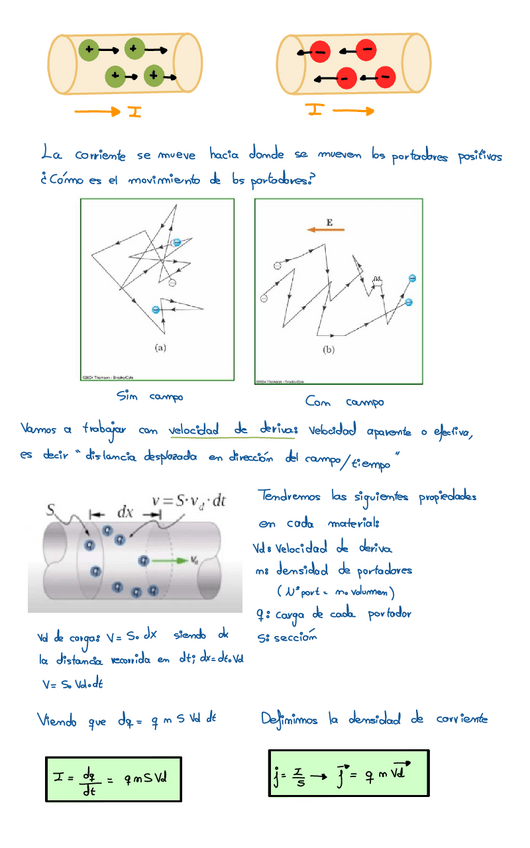 + + + +
- - - -
→ I
I →
La corriente se mueve hacia donde se mueven los portadores positivos
¿Cómo es el movimiento de los portadores?
E
(a)
(b)
Sin campo
Con campo
Vamos a trabajar con velocidad de deriva: Velocidad aparente o efectiva,
es decir "distancia desplazada en dirección del campo/tiempo"
S dx v = S·v_d·dt
v_d
Tendremos las siguientes propiedades
en cada material:
Vd: Velocidad de deriva
n: densidad de portadores
(Nº port = n · volumen)
q: carga de cada portador
S: sección
Vol de carga: V = S · dx siendo dx
la distancia recorrida en dt; dx = dt · Vd
V = S · Vd · dt
Viendo que dq = q n S Vd dt
Definimos la densidad de corriente
I = dq/dt = q n S Vd
j = I/S → j⃗ = q n Vd⃗